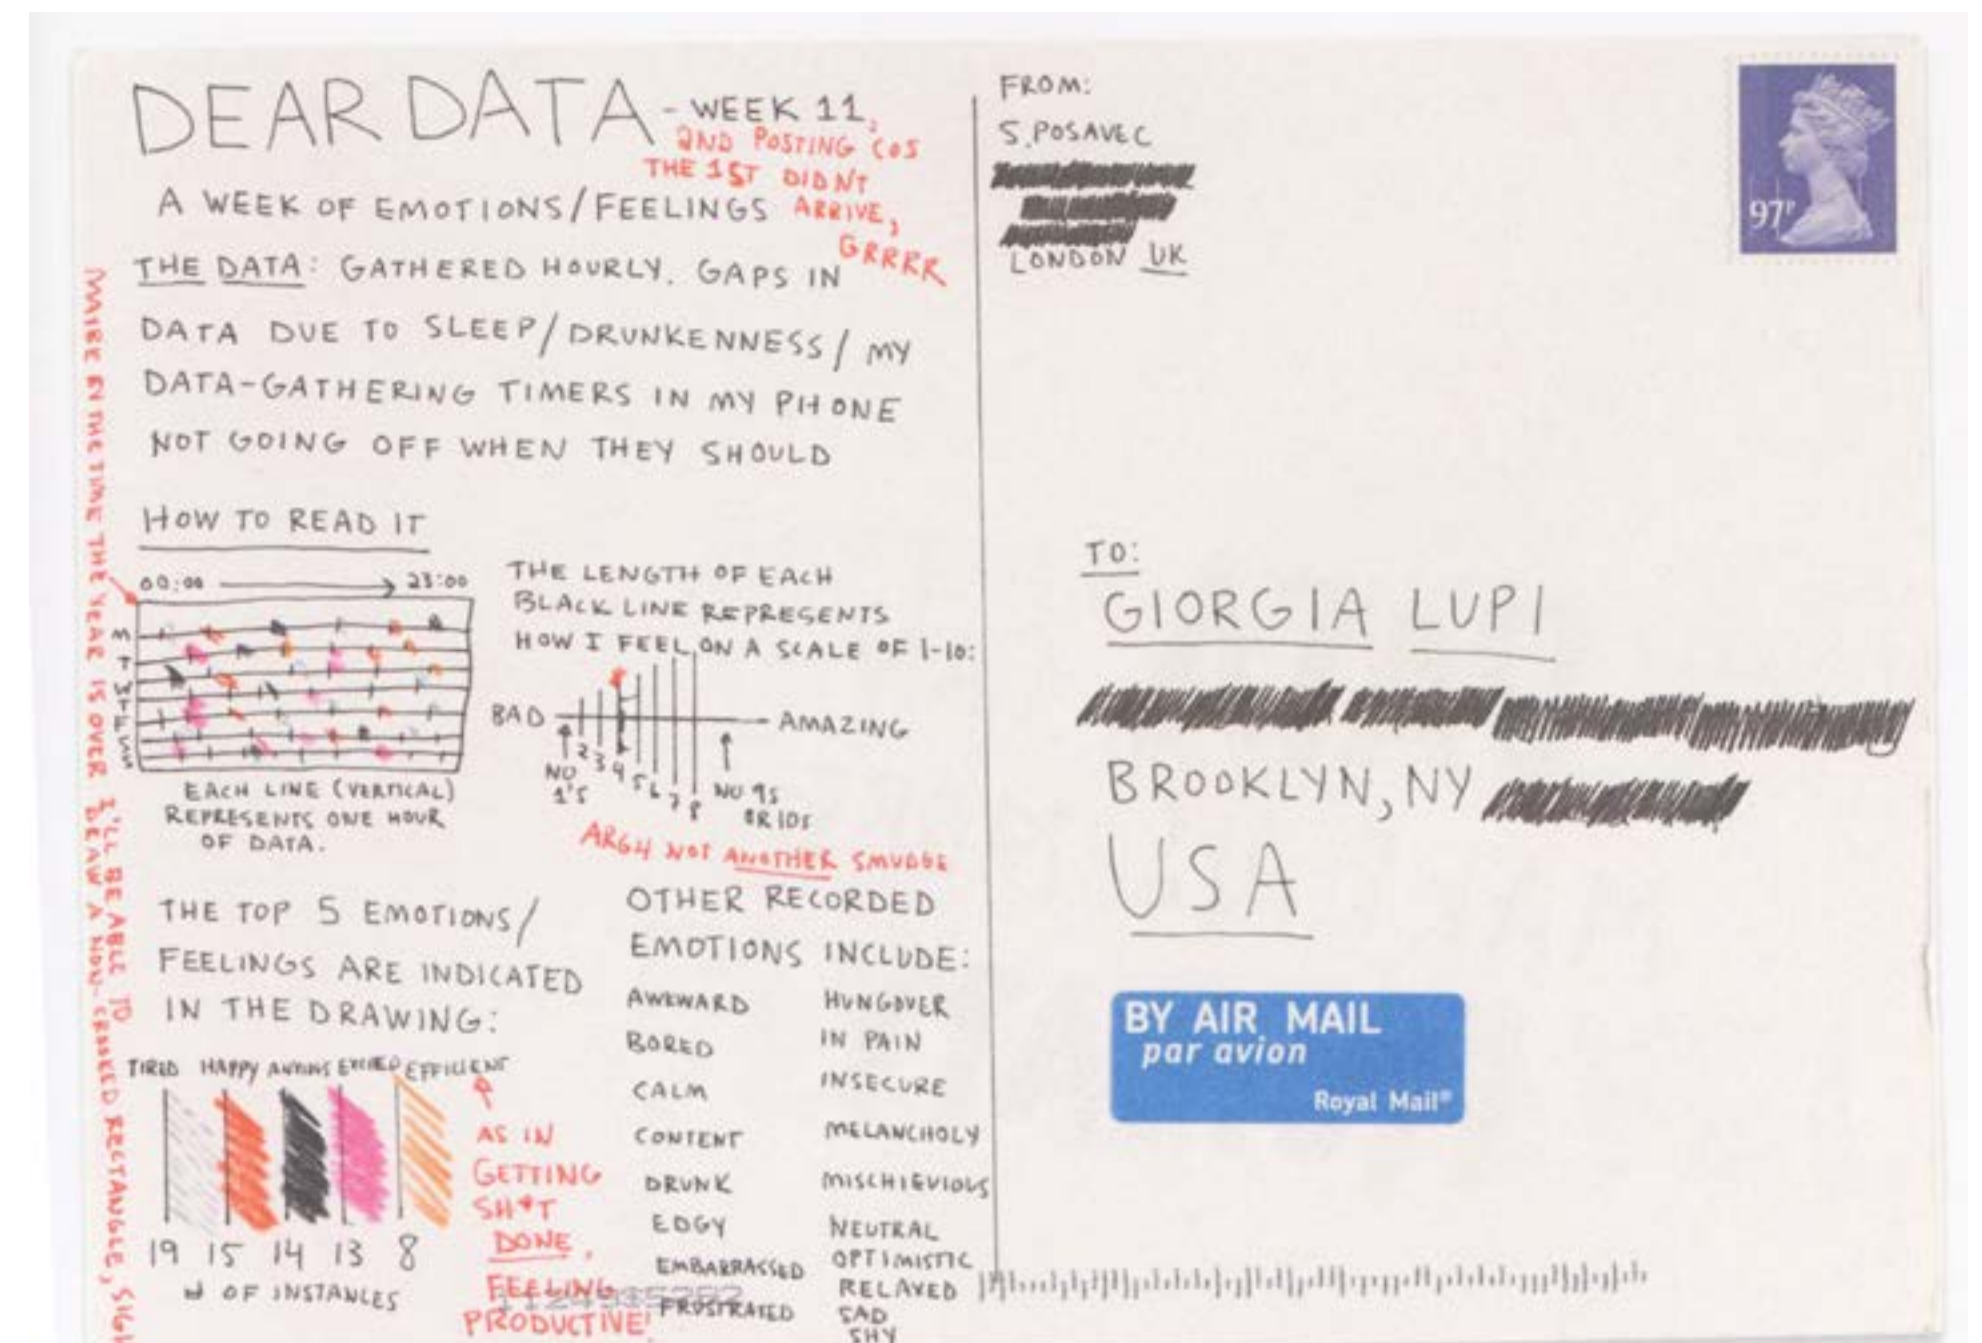 DEAR DATA - WEEK 11,
2ND POSTING COS
THE 1ST DIDN'T
ARRIVE,
GRRRR
A WEEK OF EMOTIONS/FEELINGS
THE DATA: GATHERED HOURLY. GAPS IN
DATA DUE TO SLEEP/DRUNKENNESS/MY
DATA-GATHERING TIMERS IN MY PHONE
NOT GOING OFF WHEN THEY SHOULD
HOW TO READ IT
00:00 → 23:00
M
T
W
T
F
S
S
EACH LINE (VERTICAL)
REPRESENTS ONE HOUR
OF DATA.
THE LENGTH OF EACH
BLACK LINE REPRESENTS
HOW I FEEL ON A SCALE OF 1-10:
BAD AMAZING
NO 1'S
2 3 4 5 6 7 8
NO 9S
OR 10S
ARGH NOT ANOTHER SMUDGE
THE TOP 5 EMOTIONS/
FEELINGS ARE INDICATED
IN THE DRAWING:
TIRED HAPPY ANXIOUS EXCITED EFFICIENT
19 15 14 13 8
# OF INSTANCES
AS IN
GETTING
SH*T
DONE,
FEELING
PRODUCTIVE!
OTHER RECORDED
EMOTIONS INCLUDE:
AWKWARD
BORED
CALM
CONTENT
DRUNK
EDGY
EMBARRASSED
FRUSTRATED
HUNGOVER
IN PAIN
INSECURE
MELANCHOLY
MISCHIEVIOUS
NEUTRAL
OPTIMISTIC
RELAXED
SAD
SHY
BY THE TIME THE YEAR IS OVER I'LL BE ABLE TO
DRAW A NON-CROOKED RECTANGLE, SIGH
FROM:
S. POSAVEC
LONDON UK
97P
TO:
GIORGIA LUPI
BROOKLYN, NY
USA
BY AIR MAIL
par avion
Royal Mail®